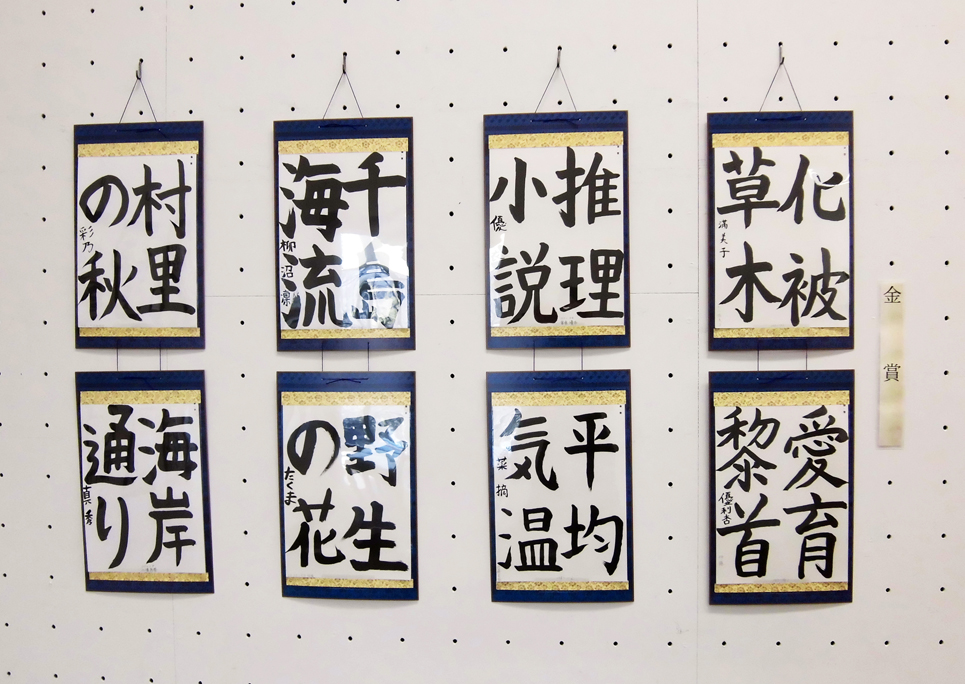 金賞
化被
草木
満美子
推理
小説
優
千島
海流
柳沼凛
村里
の秋
彩乃
愛育
黎首
優利杏
平均
気温
菜摘
野生
の花
たくま
海岸
通り
真秀